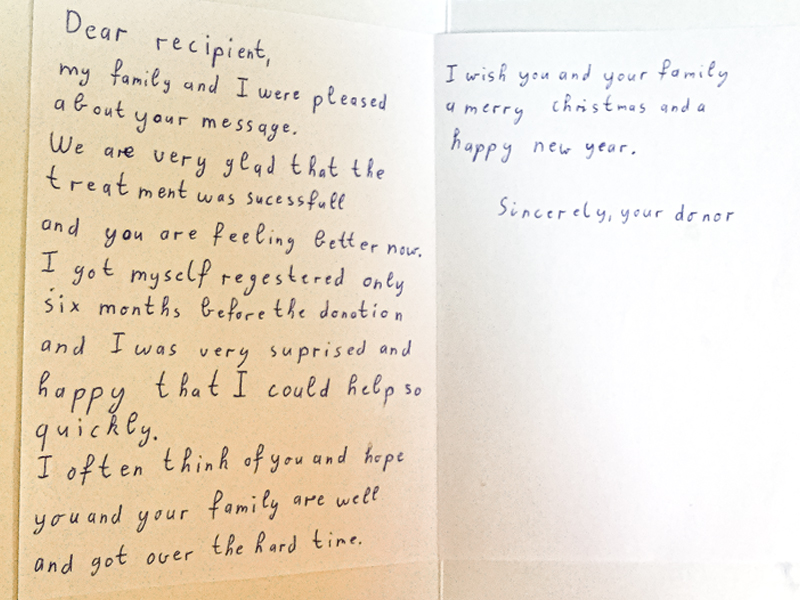 Dear recipient,
my family and I were pleased
about your message.
We are very glad that the
treatment was sucessfull
and you are feeling better now.
I got myself regestered only
six months before the donation
and I was very suprised and
happy that I could help so
quickly.
I often think of you and hope
you and your family are well
and got over the hard time.
I wish you and your family
a merry christmas and a
happy new year.
Sincerely, your donor